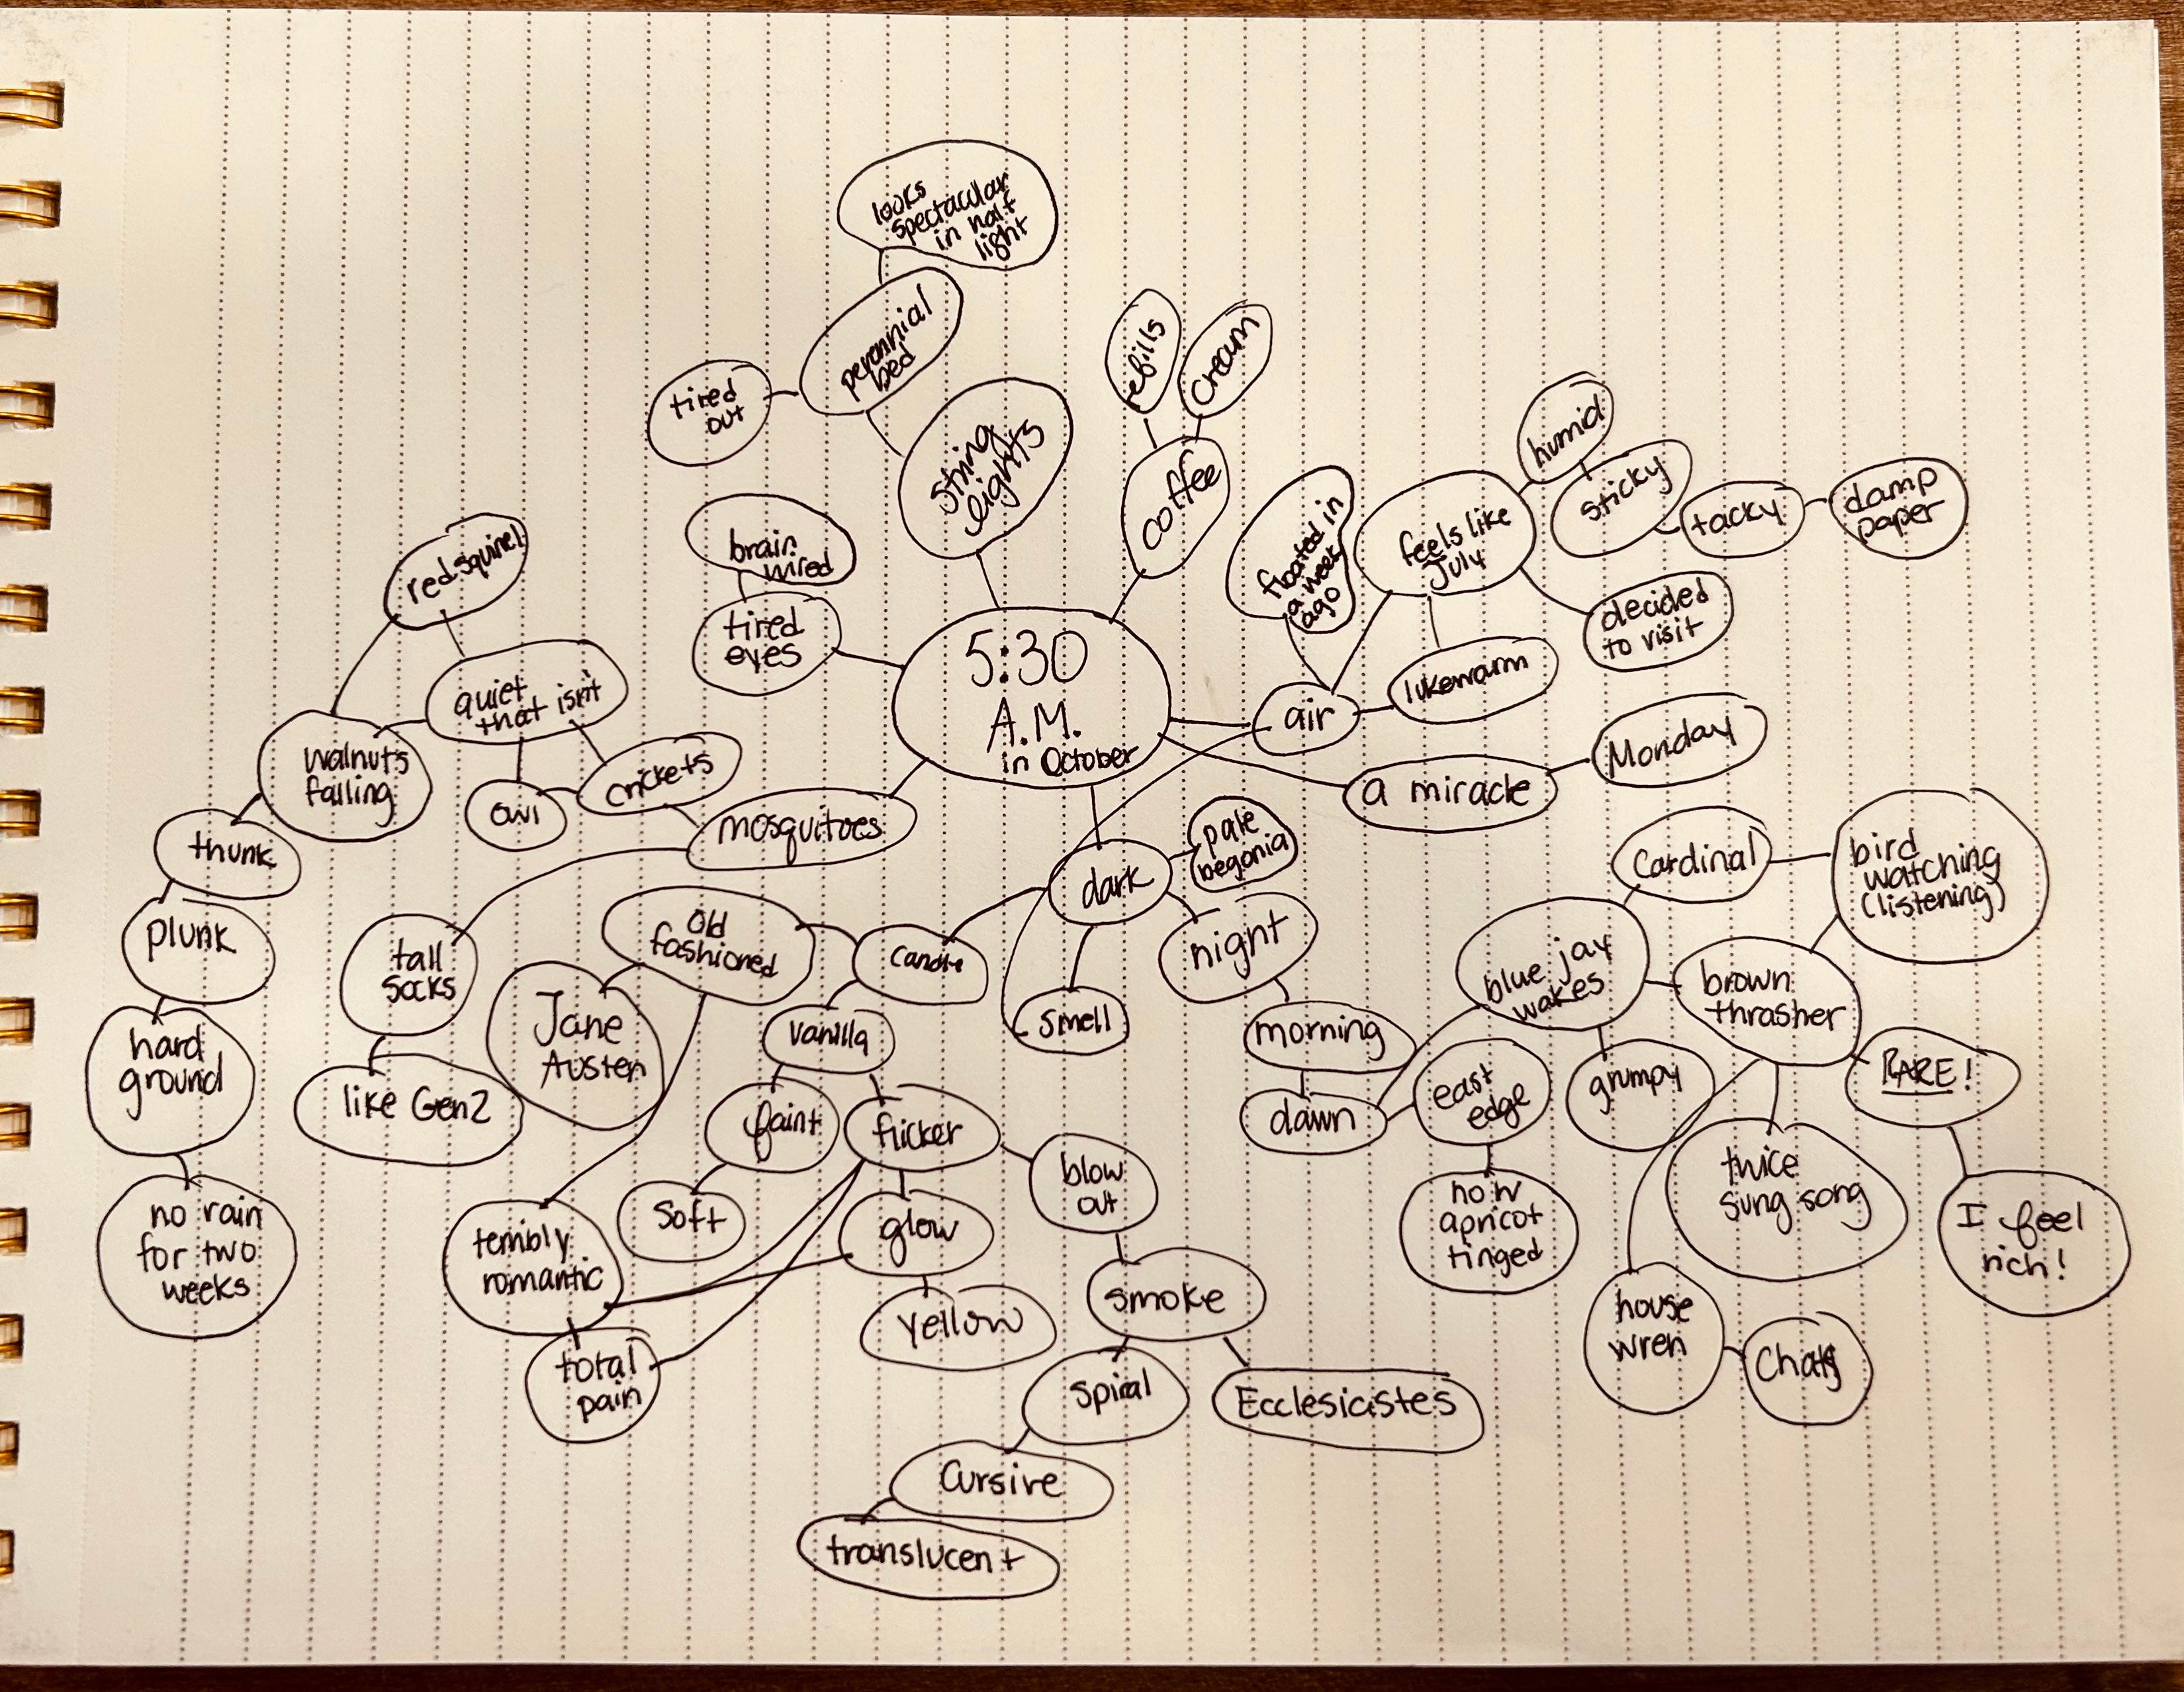 looks
spectacular
in half
light
perennial
bed
tired
out
string
lights
refills
cream
coffee
humid
sticky
tacky
damp
paper
floated in
a week
ago
feels like
July
decided
to visit
lukewarm
air
brain
wired
tired
eyes
red squirrel
quiet
that isn't
walnuts
falling
owl
crickets
mosquitoes
5:30
A.M.
in October
a miracle
Monday
thunk
plunk
hard
ground
no rain
for two
weeks
tall
socks
like Gen Z
dark
pale
begonia
night
smell
candle
old
fashioned
Jane
Austen
vanilla
faint
soft
flicker
glow
yellow
terribly
romantic
total
pain
blow
out
smoke
spiral
Ecclesiastes
cursive
translucent
morning
dawn
east
edge
now
apricot
tinged
blue jay
wakes
grumpy
Cardinal
bird
watching
(listening)
brown
thrasher
RARE!
I feel
rich!
twice
sung song
house
wren